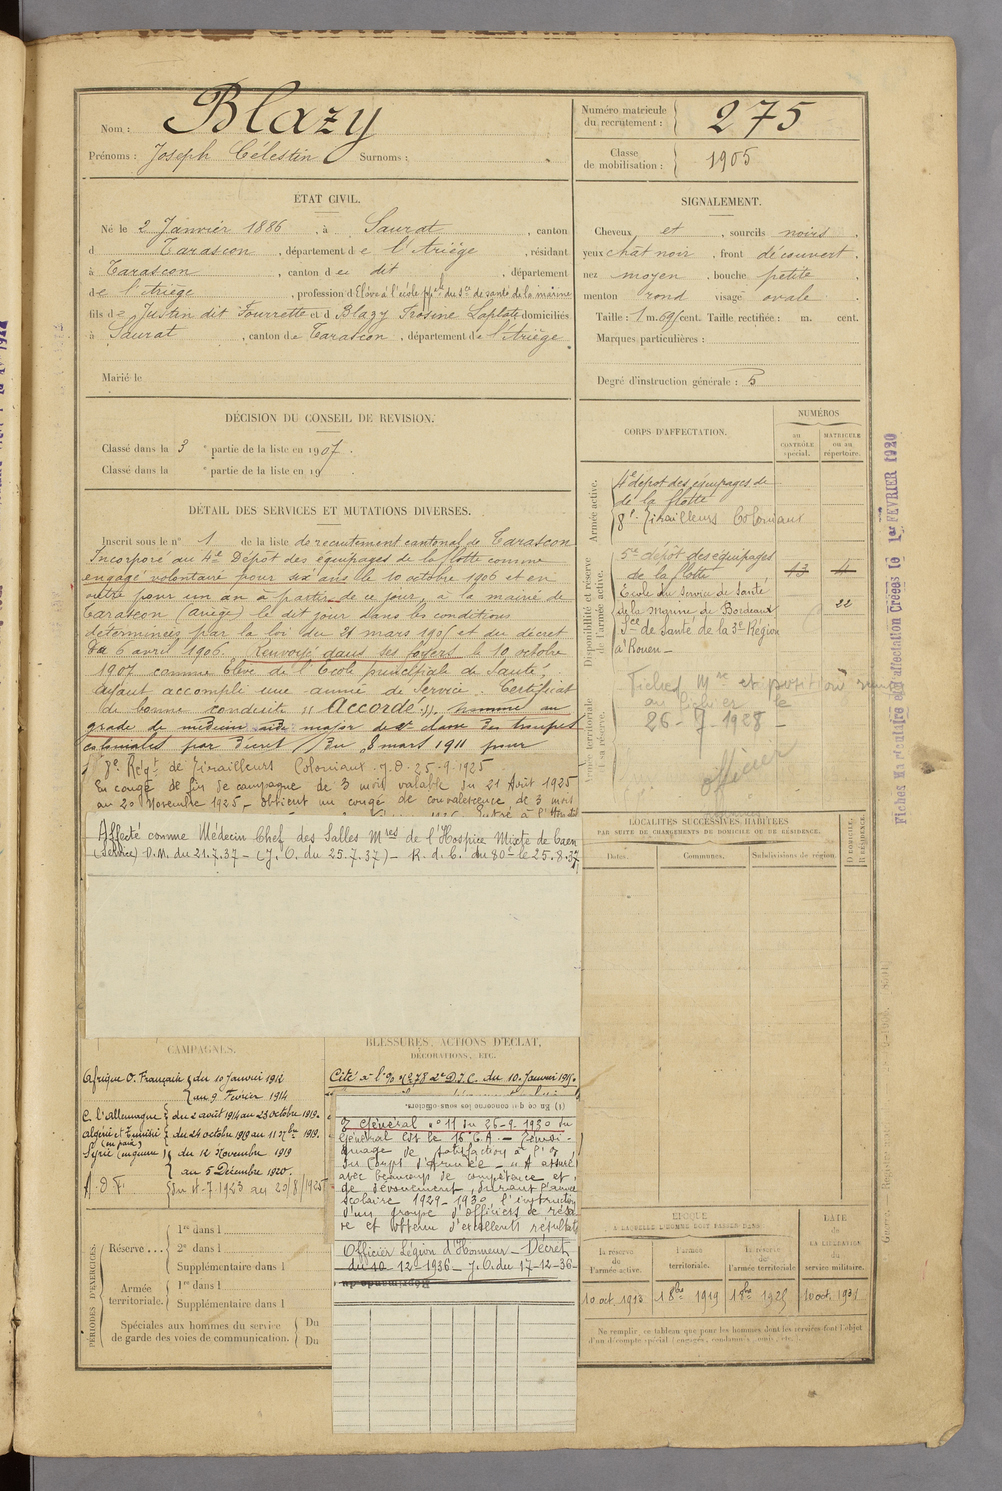 Nom : Blazy
Prénoms : Joseph Célestin Surnoms :
Numéro matricule du recrutement : 275
Classe de mobilisation : 1905
ÉTAT CIVIL.
Né le 2 Janvier 1886, à Saurat, canton
d Tarascon, département de l'Ariège, résidant
à Tarascon, canton du dit, département
de l'Ariège, profession d'Elève à l'école pple du Sce de santé de la marine
fils de Justin dit Fourrette et d Blazy Frosine Laplotte domiciliés
à Saurat, canton de Tarascon, département de l'Ariège
Marié le
SIGNALEMENT.
Cheveux et, sourcils noirs,
yeux chât noir, front découvert,
nez moyen, bouche petite,
menton rond visage ovale.
Taille : 1 m. 69 cent. Taille rectifiée : m. cent.
Marques particulières :
Degré d'instruction générale : 5
DÉCISION DU CONSEIL DE REVISION.
Classé dans la 3e partie de la liste en 1907.
Classé dans la e partie de la liste en 19
DÉTAIL DES SERVICES ET MUTATIONS DIVERSES.
Inscrit sous le n° 1 de la liste de recrutement cantonal de Tarascon
Incorporé au 4e Dépôt des équipages de la flotte comme
engagé volontaire pour six ans le 10 octobre 1906 et en
outre pour un an à partir de ce jour, à la mairie de
Tarascon (ariège) le dit jour dans les conditions
déterminées par la loi du 21 mars 1905 et du décret
du 6 avril 1906. Renvoyé dans ses foyers le 10 octobre
1907 comme Elève de l'Ecole principale de Santé,
ayant accompli une année de service. Certificat
de bonne conduite "Accordé". Nommé au
grade de médecin aide major de 2e classe des troupes
coloniales par décret du 8 mars 1911 pour
8e Régt de Tirailleurs Coloniaux. J.O. 25-9-1925
En congé de fin de campagne de 3 mois valable du 21 Août 1925
au 20 Novembre 1925 - obtient un congé de convalescence de 3 mois
Affecté comme Médecin Chef des Salles Mres de l'Hospice Mixte de Caen
(Service) D.M. du 21.7.37 - (J.O. du 25.7.37) - R. d. C. du 80e le 25.8.37
CORPS D'AFFECTATION.
NUMÉROS
au CONTRÔLE spécial.
MATRICULE ou au répertoire.
Armée active.
4e dépôt des equipages de
de la flotte
8e Tirailleurs Coloniaux
Disponibilité et réserve de l'armée active.
5e dépôt des équipages
de la flotte 13 4
Ecole du Service de Santé
de la Marine de Bordeaux 22
Sce de Santé de la 3e Région
à Rouen -
Armée territoriale et sa réserve.
Fiches Mre et position
au fichier le
26-7-1928 -
officier
LOCALITÉS SUCCESSIVES HABITÉES
PAR SUITE DE CHANGEMENTS DE DOMICILE OU DE RÉSIDENCE.
Dates. Communes. Subdivisions de région. D DOMICILE, R RÉSIDENCE.
CAMPAGNES.
Afrique O. Française du 10 Janvier 1912
au 9 Fevrier 1914
C. l'Allemagne du 2 août 1914 au 23 octobre 1919.
Algérie et Tunisie (en paix) du 24 octobre 1919 au 11 9bre 1919.
Syrie (en guerre) du 12 Novembre 1919
au 5 Décembre 1920.
A.O.F. du 11-7-1923 au 20/8/1925
BLESSURES, ACTIONS D'ÉCLAT, DÉCORATIONS, ETC.
Cité à l'O/ n° 278 2e D.I.C. du 10. Janvier 1915.
(1) En ce qui concerne les sous-officiers.
O Général n° 11 du 26-9-1930 du
Général Cdt le 16e C.A. - Témoi-
gnage de satisfaction à l'O/
du Corps d'Armée - "A assuré
avec beaucoup de compétence et
de dévouement, durant l'année
scolaire 1929-1930 l'instruction
d'un groupe d'officiers de réser-
ve et obtenu d'excellents résultats
Officier Légion d'Honneur - Décret
du 10-12-1936 - J.O. du 17-12-36 -
PÉRIODES D'EXERCICES.
Réserve... 1re dans l
2e dans l
Supplémentaire dans l
Armée territoriale. 1re dans l
Supplémentaire dans l
Spéciales aux hommes du service Du
de garde des voies de communication. Du
ÉPOQUE
À LAQUELLE L'HOMME DOIT PASSER DANS
la réserve de l'armée active.
l'armée territoriale.
la réserve de l'armée territoriale
DATE de LA LIBÉRATION du service militaire.
10 oct 1913 1 8bre 1919 1 8bre 1925 10 oct. 1931
Ne remplir ce tableau que pour les hommes dont les services font l'objet
d'un décompte spécial (engagés, condamnés, omis, etc.)
Fiches Matriculaire et d'affectation Créées le 1er FEVRIER 1920